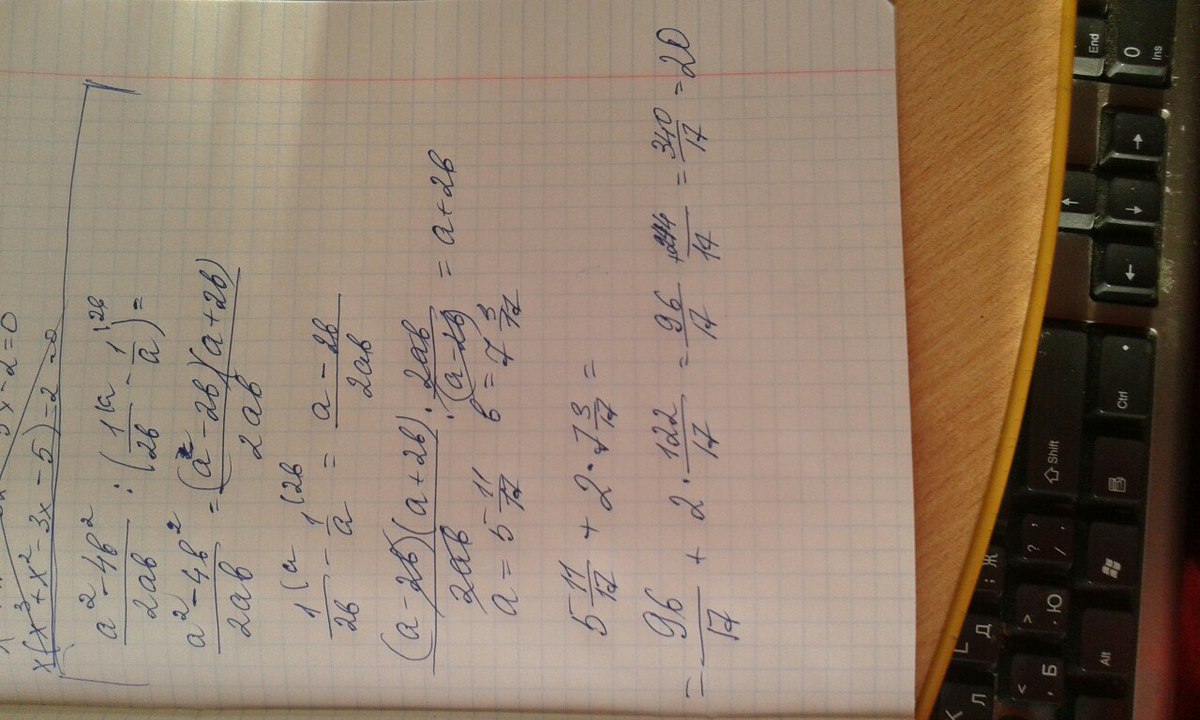 x(x³+x²-3x-5)=2=0
(a²-4b²)/(2ab) : (1/(2b) - 1/a) =
(a²-4b²)/(2ab) = ((a-2b)(a+2b))/(2ab)
1/(2b) - 1/a = (a-2b)/(2ab)
((a-2b)(a+2b))/(2ab) · (2ab)/(a-2b) = a+2b
a = 5 11/17 b = 7 3/17
5 11/17 + 2 · 7 3/17 =
= 96/17 + 2 · 122/17 = 96/17 + 244/17 = 340/17 = 20
End
0
Ins
Shift
Ctrl
Alt
Ж
?
/
Д
L
Ю
>
Б
<
Л